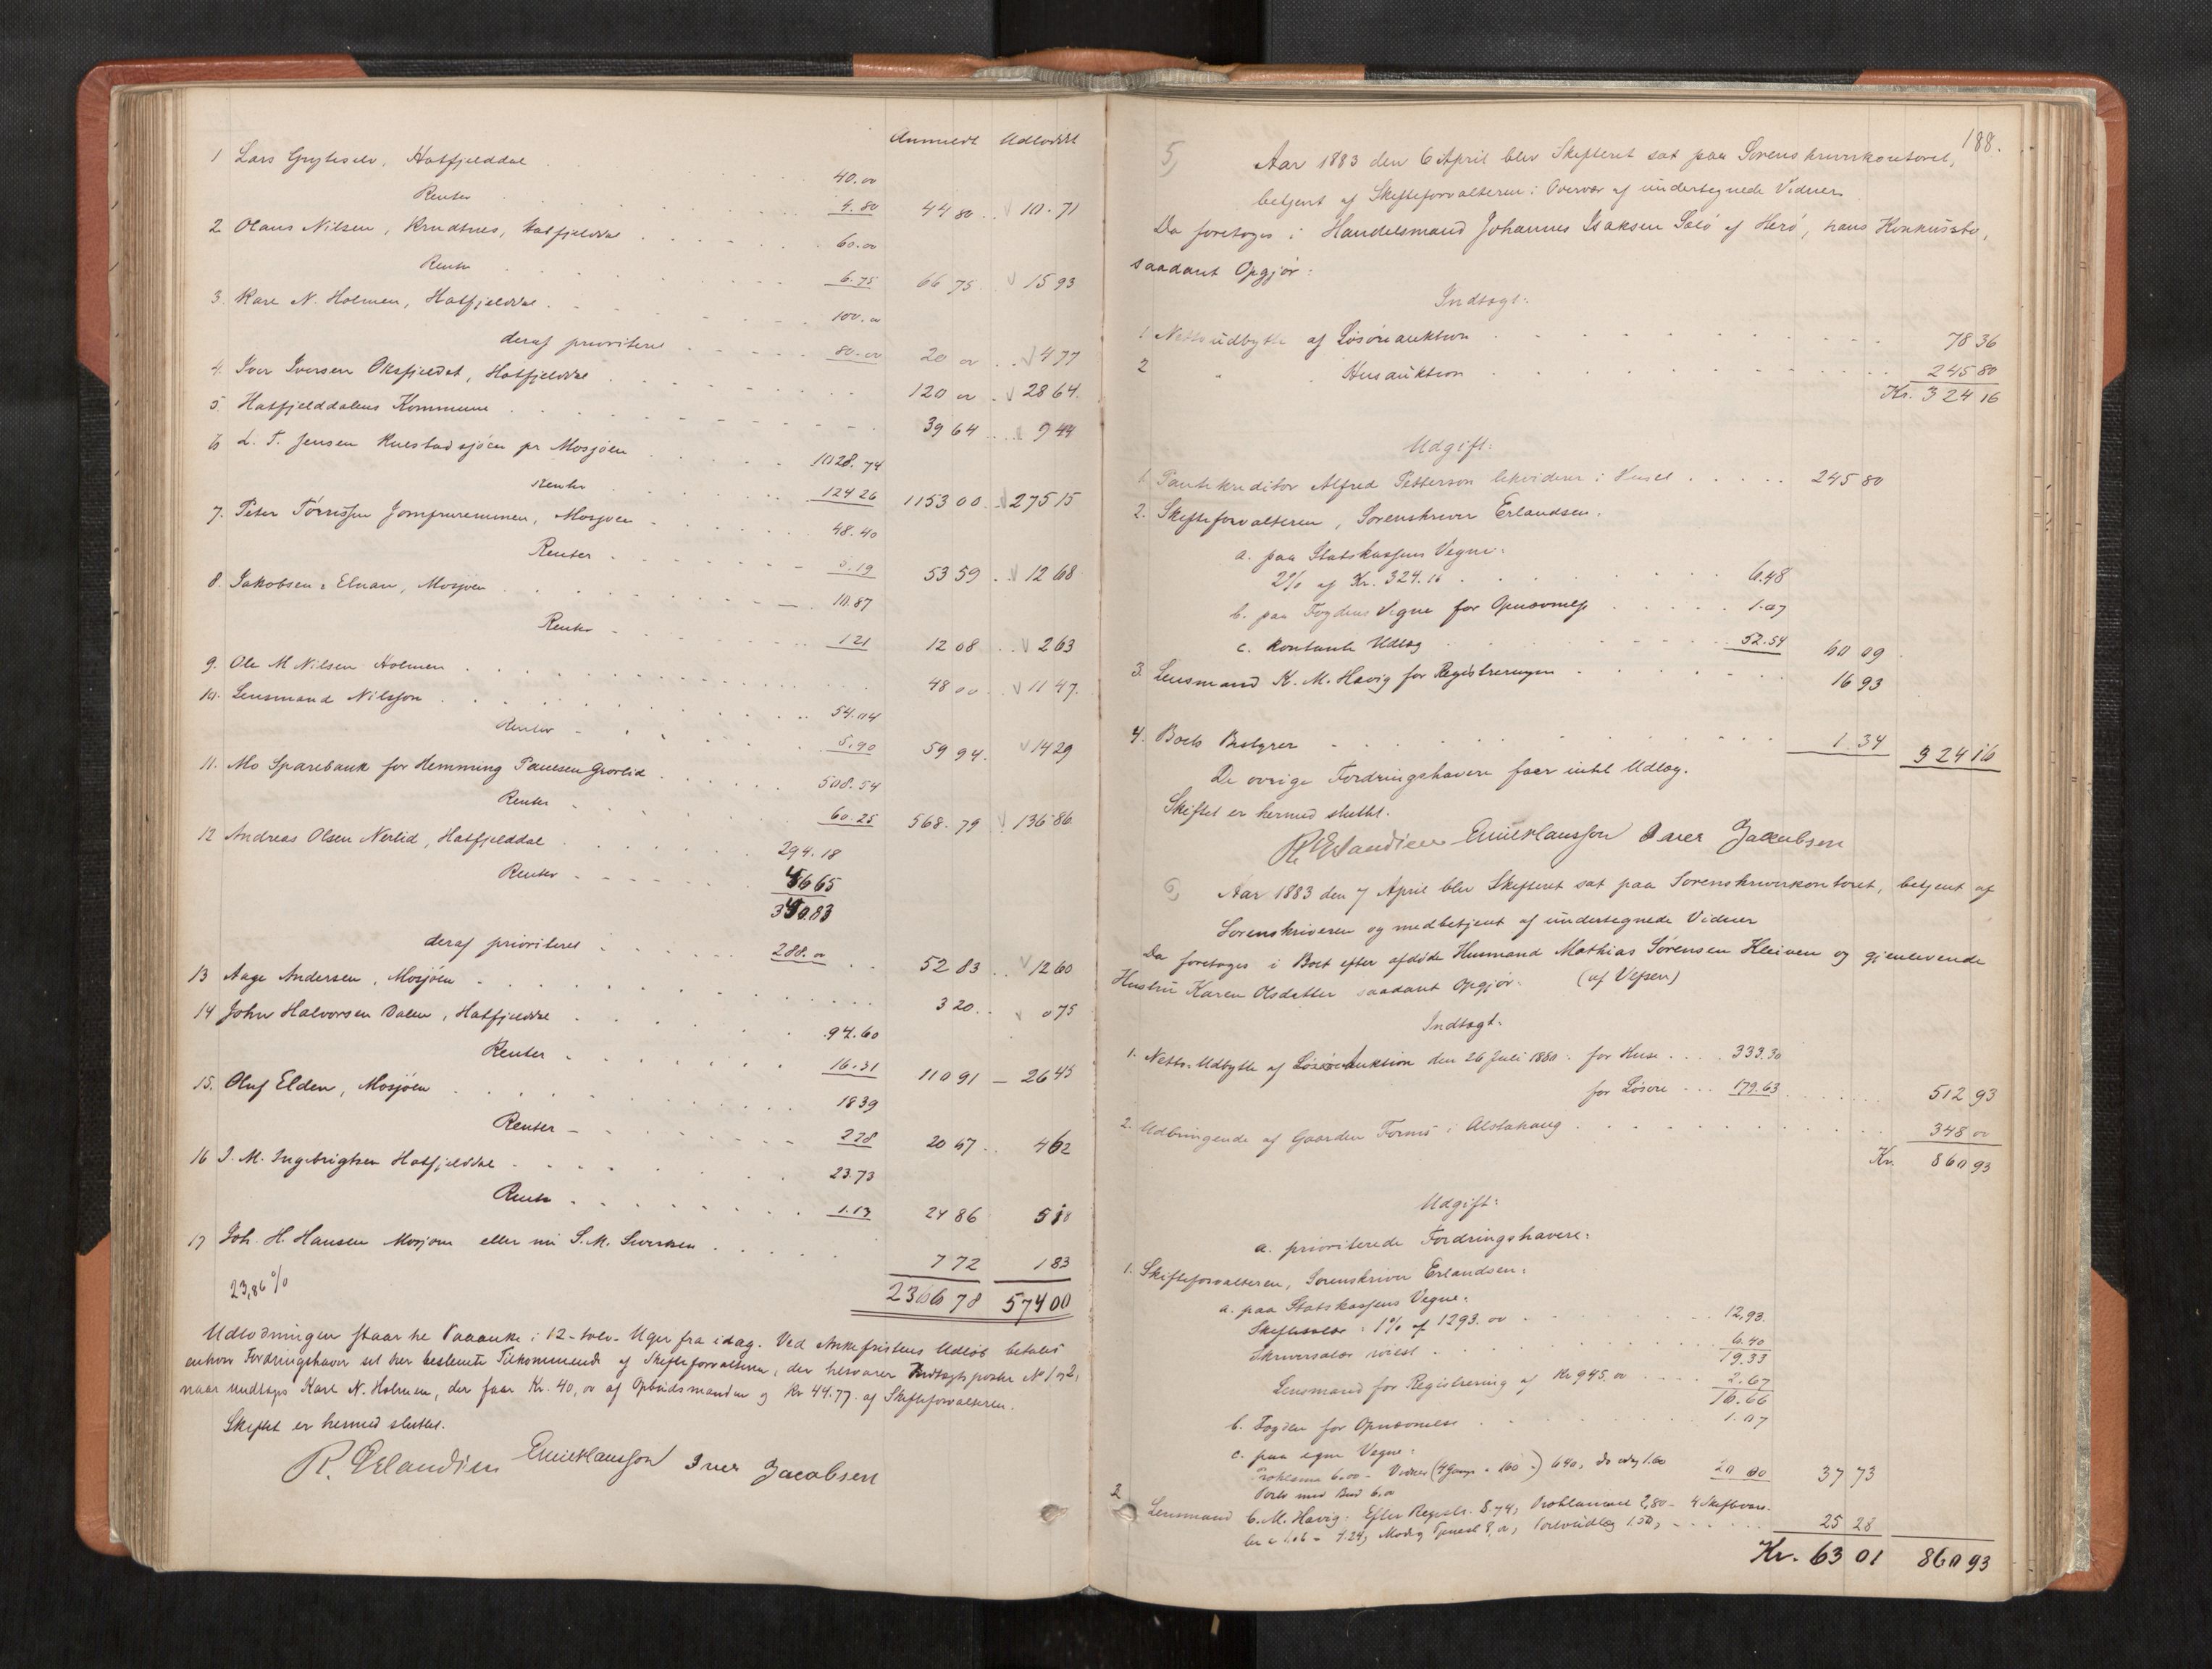 Anmeldt Udloddet
1 Lars Gryteselv, Hatfjelddal 40.00
Renter 4.80 44 80 10.71
2 Olaus Nilsen, Krudtnes, Hatfjelddal 60.00
Renter 6.75 66 75 15 93
3. Karl N. Holmen, Hatfjelddal 100.00
deraf prioriteret 80.00 20 00 4 77
4. Iver Iversen Oksfjeldet, Hatfjelddal 120 00 28 64
5. Hatfjelddalens Kommune 39 64 9 44
6 L. T. Jensen Kulstadsjøen pr Mosjøen 1028.74
Renter 124 26 1153 00 275 15
7. Peter Tørrissen Jomfruremmen, Mosjøen 48.40
Renter 5.19 53 59 12 68
8. Jakobsen & Elnan, Mosjøen 10.87
Renter 1 21 12 08 2 63
9. Ole M Nilsen Holmen 48 00 11 47
10. Lensmand Nilsson 54.04
Renter 5.90 59 94 14 29
11. Mo Sparebank for Hemming Paulsen Grovlid 508.54
Renter 60.25 568.79 136 86
12 Andreas Olsen Nerlid, Hatfjelddal 294.18
Renter 46 65
340.83
deraf prioriteret 288.00 52 83 12 60
13 Aage Andersen, Mosjøen 3 20 0 75
14 John Halvorsen Dalen, Hatfjelddal 94.60
Renter 16.31 110 91 26 45
15. Oluf Elden, Mosjøen 18 39
Renter 2 28 20 67 4 62
16 I. M. Ingebrigtsen Hatfjelddal 23.73
Renter 1.13 24 86 5 18
17 Joh. H. Hansen Mosjøen eller nu S. M. Sivertsen 7 72 1 83
23,86 % 2306 78 574 00
Udlodningen staar til Paaanke i 12 - tolv - Uger fra idag. Ved Ankefristens Udløb betales
enhver Fordringshaver set her bestemte Tilkommende af Skifteforvalteren, der hesvarer Indtægtsposter No 1 og 2,
naar undtages Karl N. Holmen, der faar Kr. 40,00 af Opbudsmanden og Kr 44.77 af Skifteforvalteren.
Skiftet er hermed sluttet.
R. Erlandsen Emil Klausson Iver Jacobsen
188.
5) Aar 1883 den 6 April blev Skifteret sat paa Sorenskriverkontoret,
betjent af Skifteforvalteren i Overvær af undertegnede Vidner.
Da foretoges i Handelsmand Johannes Isaksen Salø af Herø, hans Konkursbo,
saadant Opgjør:
Indtægt:
1 Nettoudbytte af Løsøreauktion 78 36
2 " Husauktion 245 80
Kr. 324 16
Udgift:
1. Pantekreditor Alfred Petterson likviderer i Huset 245 80
2. Skifteforvalteren, Sorenskriver Erlandsen.
a. paa Statskassens Vegne:
2% af Kr. 324.16 6.48
b. paa Fogdens Vegne for Opnævnelse 1.07
c. kontante Udlæg 52.54 60 09
3. Lensmand K. M. Havig for Registreringen 16 93
4. Boets Bestyrer 1.34 324 16
De øvrige Fordringshavere faar intet Udlæg.
Skiftet er hermed sluttet.
R. Erlandsen Emil Klausson Iver Jacobsen
6) Aar 1883 den 7 April blev Skifteret sat paa Sorenskriverkontoret, betjent af
Sorenskriveren og medbetjent af undertegnede Vidner
Da foretoges i Boet efter afdøde Husmand Mathias Sørensen Kleiven og gjenlevende
Hustru Karen Olsdatter saadant Opgjør. (af Vefsen)
Indtægt.
1. Netto-Udbytte af Løsøreauktion den 26 Juli 1880: for Huse 333.30
for Løsøre 179.63 512 93
2. Udbringende af Gaarden Formo i Alstahaug 348 00
Kr. 860 93
Udgift:
a. prioriterede Fordringshavere:
1. Skifteforvalteren, Sorenskriver Erlandsen:
a. paa Statskassens Vegne:
Skiftesalær: 1% af 1293.00 12,93.
Skriversalær 6.40
19.33
Lensmand for Registrering af Kr 945.00 2.67
16.66
b. Fogden for Opnævnelse 1.07
c. paa egne Vegne:
Proklama 6.00 - Vidner (4 Gange á 160) 640, 1.60
Porto med Bud 6,00 20 00 37 73
2 Lensmand C. M. Havig: Efter Registr. 8.74, Proklamaet 2,80 - 4 Skiftevars-
ler á 1.06 = 4.24, 8,00, Portoudlæg 1.50, 25 28
Kr. 63 01 860 93